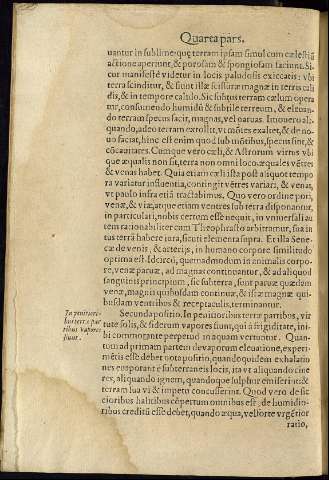 Quarta pars.
uantur in sublime: quę terram ipsam simul cum cælesti
actione aperiunt, & porosam & spongiosam faciunt. Si-
cut manifestè videtur in locis paludosis exiccatis: vbi
terra scinditur, & sunt illæ scissuræ magnæ in terris cali
dis, & in tempore calido. Sic subtus terram cælum opera
tur, consumendo humidũ & subtile terreum, & eleuan-
do terram specus facit, magnas, vel paruas. Imo vero ali-
quando, adeo terram extollit, vt mõtes exaltet, & de no-
uo faciat, hinc est enim quod sub mõtibus, specus sint, &
cõcauitates. Cumque vero cæli, & Astrorum virtus vbi
que æqualis non sit, terra non omni loco, æquales vẽtres
& venas habet. Quia etiam cæli ista post aliquot tempo
ra variatur influentia, contingit vẽtres variari, & venas,
vt paulo infra etiã tractabimus. Quo vero ordine pori,
venæ, & viæ, atque etiam ventres sub terra disponantur,
in particulari, nobis certum esse nequit, in vniuersali au
tem rationabiliter cum Theophrasto arbitramur, sua in
tus terrã habere iura, sicut elementa supra. Et illa Sene-
cæ de venis, & arterijs, in humano corpore similitudo
optima est. Idcircò, quemadmodum in animalis corpo-
re, venæ paruæ, ad magnas continuantur, & ad aliquod
sanguinis principium, sic subterra, sunt paruæ quædem
venæ, magnis quibusdam continuæ, & istæ magnæ qui-
busdam ventribus & receptaculis, terminantur.
In penitiori-
bus terræ par
tibus vapores
sunt.
Secunda positio. In penitioribus terræ partibus, vir
tute solis, & siderum vapores sunt, qui à frigiditate, ini-
bi commorante perpetuò in aquam vertuntur. Quan-
tum ad primam partem de vaporum eleuatione, experi-
mẽtis esse debet nota positio, quando quidem exhalatio
nes eorporant è subterraneis locis, ita vt aliquando cine
res, aliquando ignem, quandoque sulphur emiserint: &
terram sua vi & impetu concusserint. Quod vero de sic
cioribus habitus cõpertum omnibus est, de humidio-
ribus creditũ esse debet, quando æqua, vel forte vrgẽtior
ratio,